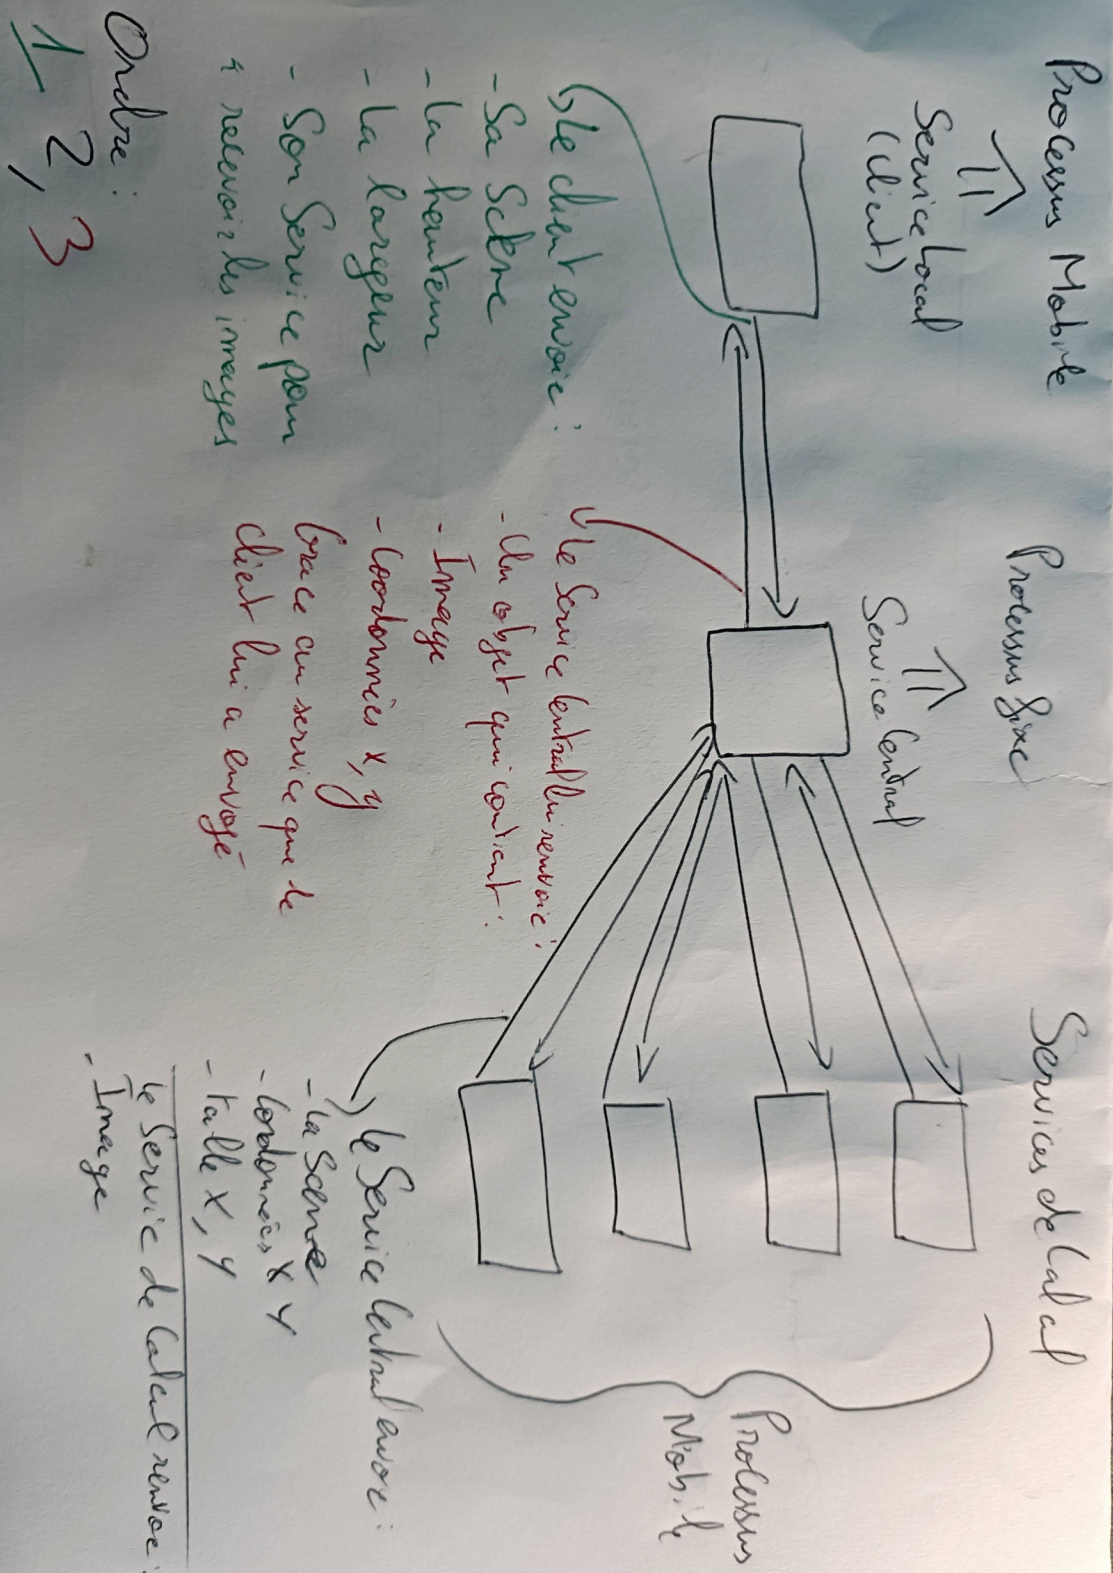 Processus Mobile
Service Local
(Client)
Processus fixe
Service Central
Services de Calcul
Processus
Mobile
le client envoie :
- Sa Scène
- la hauteur
- la largeur
- Son Service pour
recevoir les images
le Service Central lui renvoie :
- Un objet qui contient :
- Image
- Coordonnées x, y
Grace au service que le
client lui a envoyé
le Service Central envoie :
- la Scene
- Cordonnées x y
- taille x, y
le Service de Calcul renvoie :
- Image
Ordre :
1 2, 3